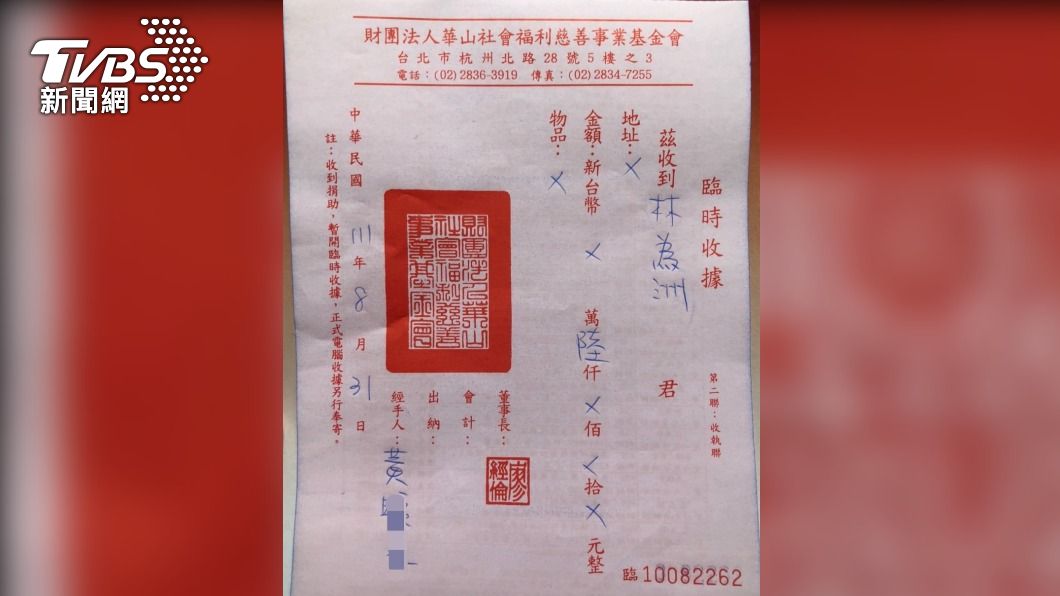 TVBS
新聞網
財團法人華山社會福利慈善事業基金會
台北市杭州北路28號5樓之3
電話：(02)2836-3919 傳真：(02)2834-7255
臨時收據
第二聯：收執聯
茲收到 林為洲 君
地址：X
金額：新台幣 X 萬 陸 仟 X 佰 X 拾 X 元整
物品：X
董事長：
廖經倫
會計：
出納：
經手人：黃
財團法人華山社會福利慈善事業基金會
中華民國 111 年 8 月 31 日
註：收到捐助，暫開臨時收據，正式電腦收據另行奉寄。
臨10082262